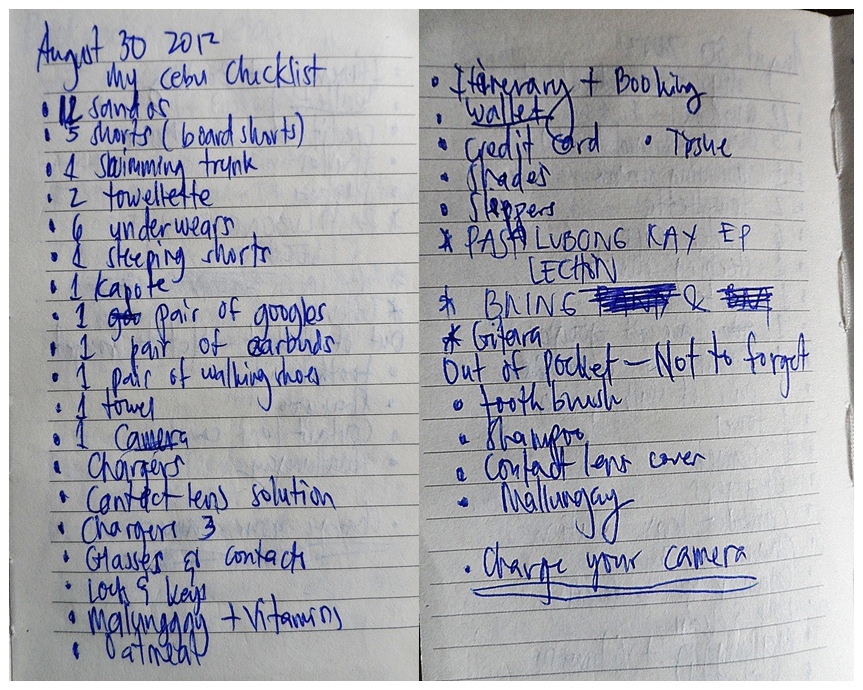 August 30 2012
My Cebu Checklist
• 12 sandos
• 5 shorts (board shorts)
• 1 swimming trunk
• 2 towellette
• 6 underwears
• 1 sleeping shorts
• 1 kapote
• 1 pair of googles
• 1 pair of earbuds
• 1 pair of walking shoes
• 1 towel
• 1 Camera
• Chargers
• Contact lens solution
• Chargers 3
• Glasses & contacts
• Lock & keys
• Malunggay + Vitamins
• Oatmeal
• Itinerary + Booking
• Wallet
• Credit Card • Tissue
• Shades
• Sleppers
* PASALUBONG KAY EP
LECHON
* BRING &
* Gitara
Out of pocket — Not to forget
• tooth brush
• Shampoo
• Contact lens cover
• Mallungay
• Charge your camera